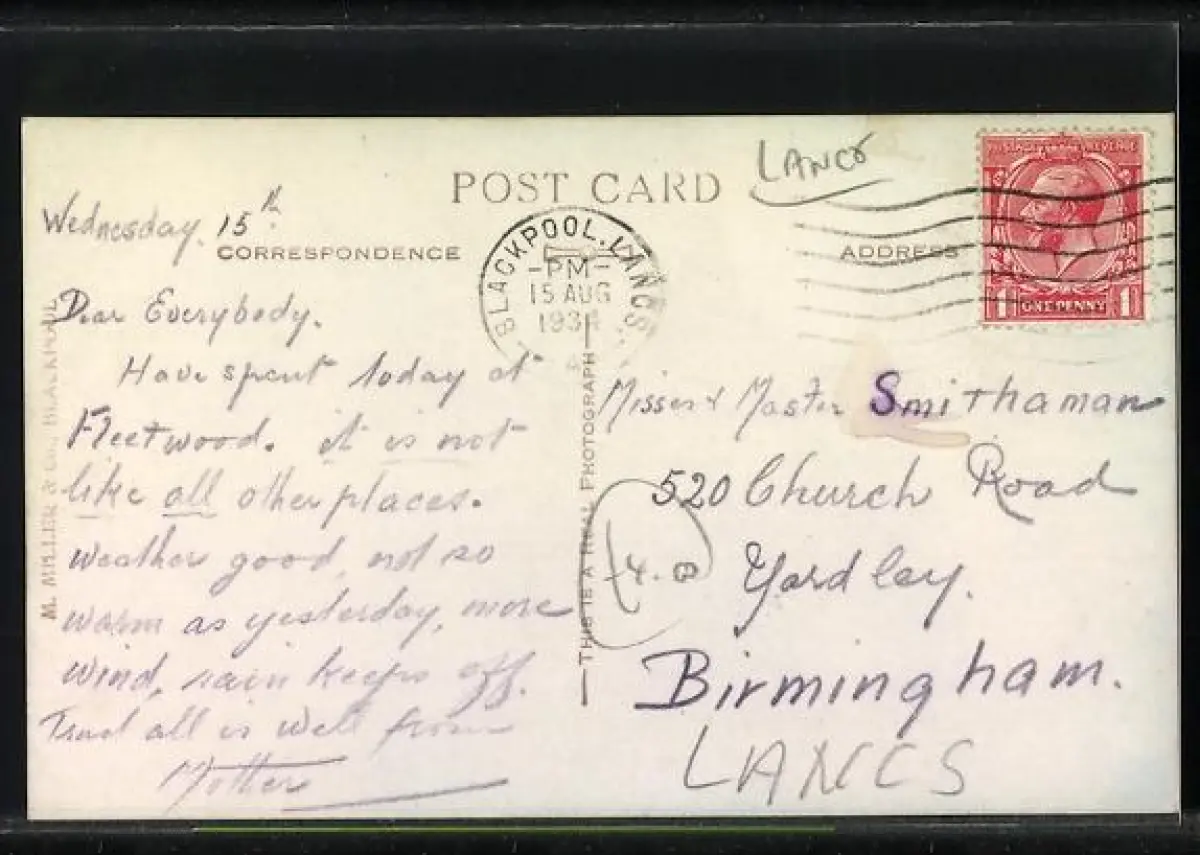 LANCS
POST CARD
Wednesday. 15th
CORRESPONDENCE
ADDRESS
BLACKPOOL. LANCS.
-PM-
15 AUG
1934
POSTAGE REVENUE
1 ONE PENNY 1
Dear Everybody.
Have spent today at
Fleetwood. it is not
like all other places.
Weather good, not so
warm as yesterday, more
wind, rain keeps off.
Trust all is well from
Mother
M. MILLER & Co., BLACKPOOL
THIS IS A REAL PHOTOGRAPH
Misses & Master Smithaman
520 Church Road
Yardley.
Birmingham.
LANCS